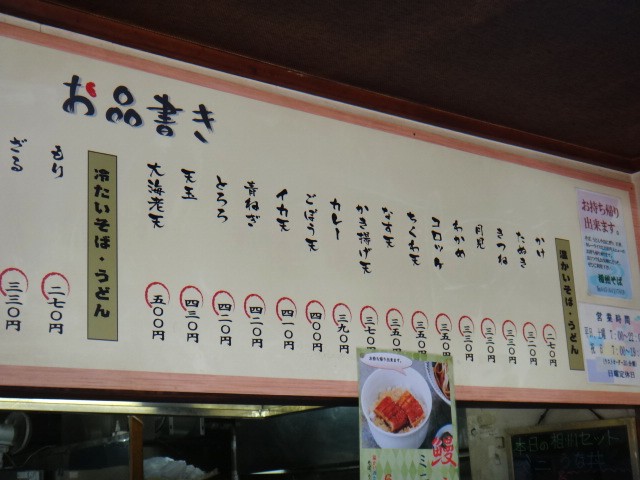 お品書き
温かいそば・うどん
かけ 二七〇円
たぬき 三三〇円
きつね 三三〇円
月見 三三〇円
わかめ 三三〇円
コロッケ 三五〇円
ちくわ天 三五〇円
なす天 三五〇円
かき揚げ天 三七〇円
カレー 三九〇円
ごぼう天 四〇〇円
イカ天 四一〇円
青ねぎ 四二〇円
とろろ 四二〇円
天玉 四三〇円
大海老天 五〇〇円
冷たいそば・うどん
もり 二七〇円
ざる 三三〇円
お持ち帰り
出来ます。
営業時間
日曜定休日
鰻
ミニ
本日の相州セット